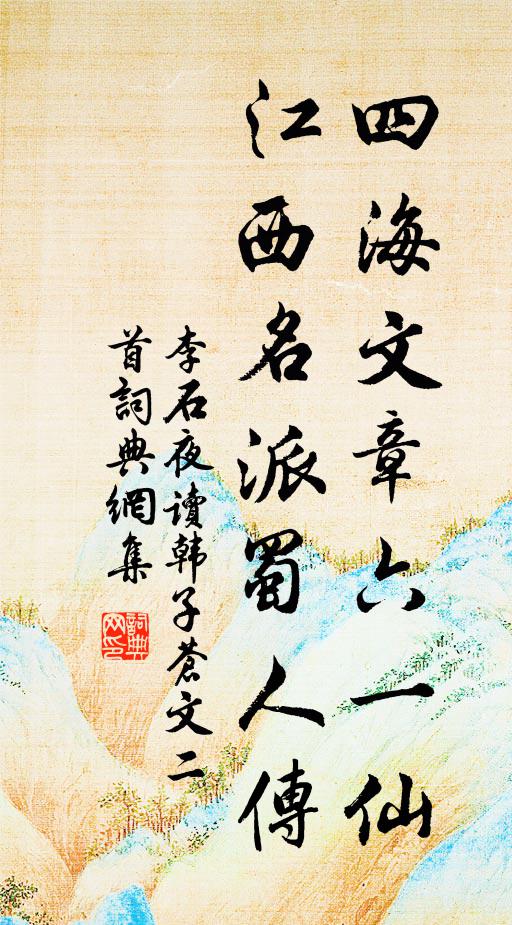 四海文章六一仙
江西名派蜀人傳
李石夜讀韩子蒼文二
首詞典網集
詞典网印